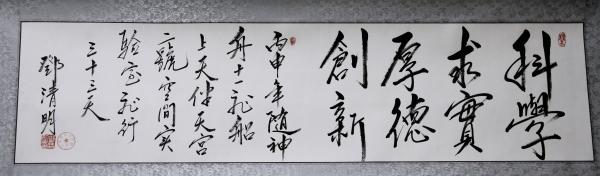 科學
求實
厚德
創新
丙申年随神
舟十一飛船
上天伴天宮
二號空间实
验室飛行
三十三天
鄧清明